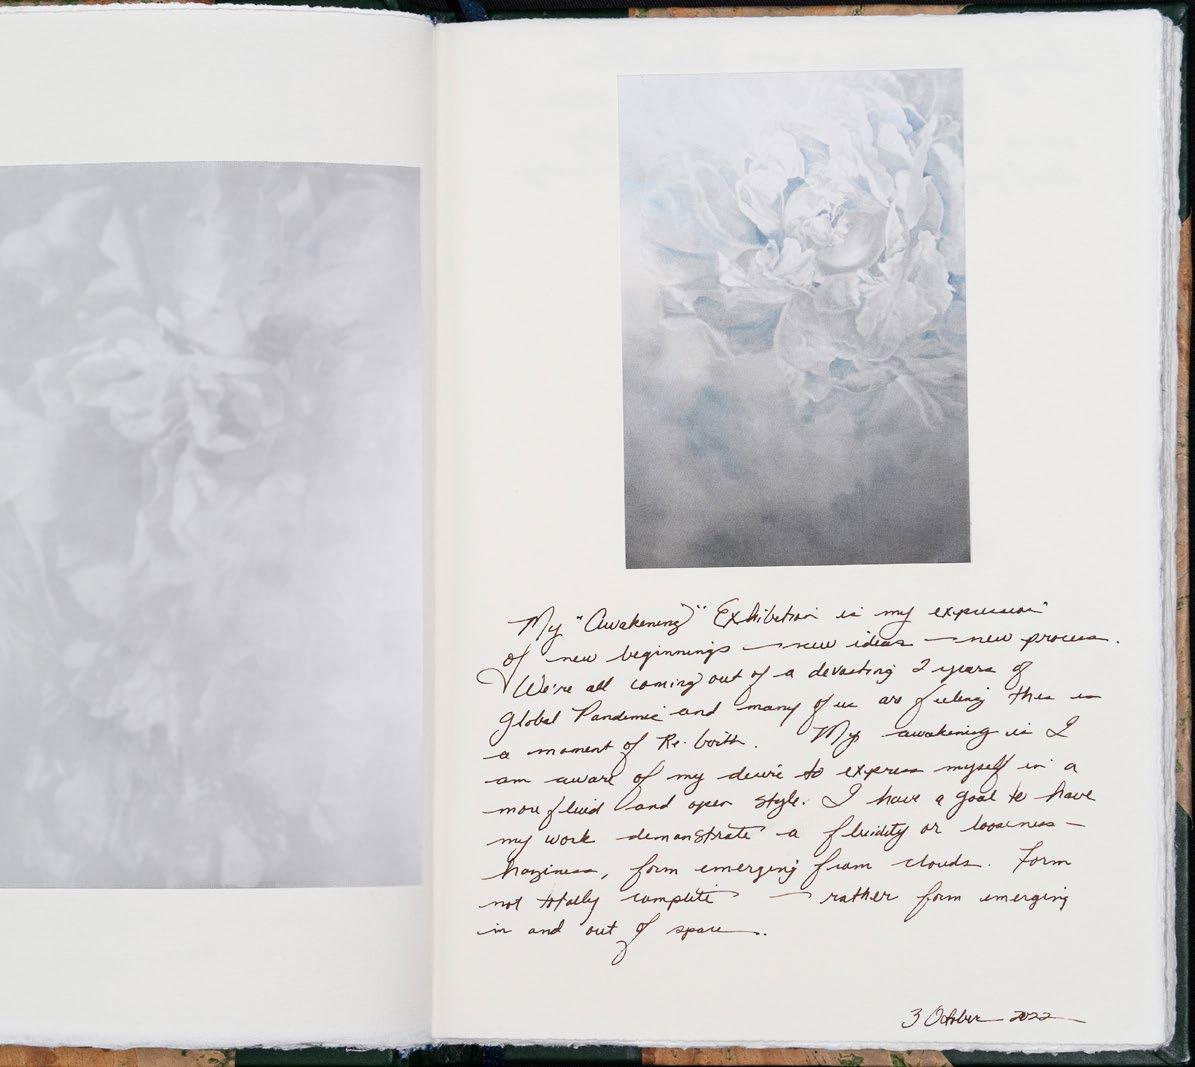 My "Awakening" Exhibition is my expression
of new beginnings — new ideas — new process.
We're all coming out of a devasting 2 years of
Global Pandemic and many of us are feeling this is
a moment of Re-birth. My awakening is I
am aware of my desire to express myself in a
more fluid and open style. I have a goal to have
my work demonstrate a fluidity or looseness –
haziness, form emerging from clouds. Form
not totally complete — rather form emerging
in and out of space.
3 October 2022